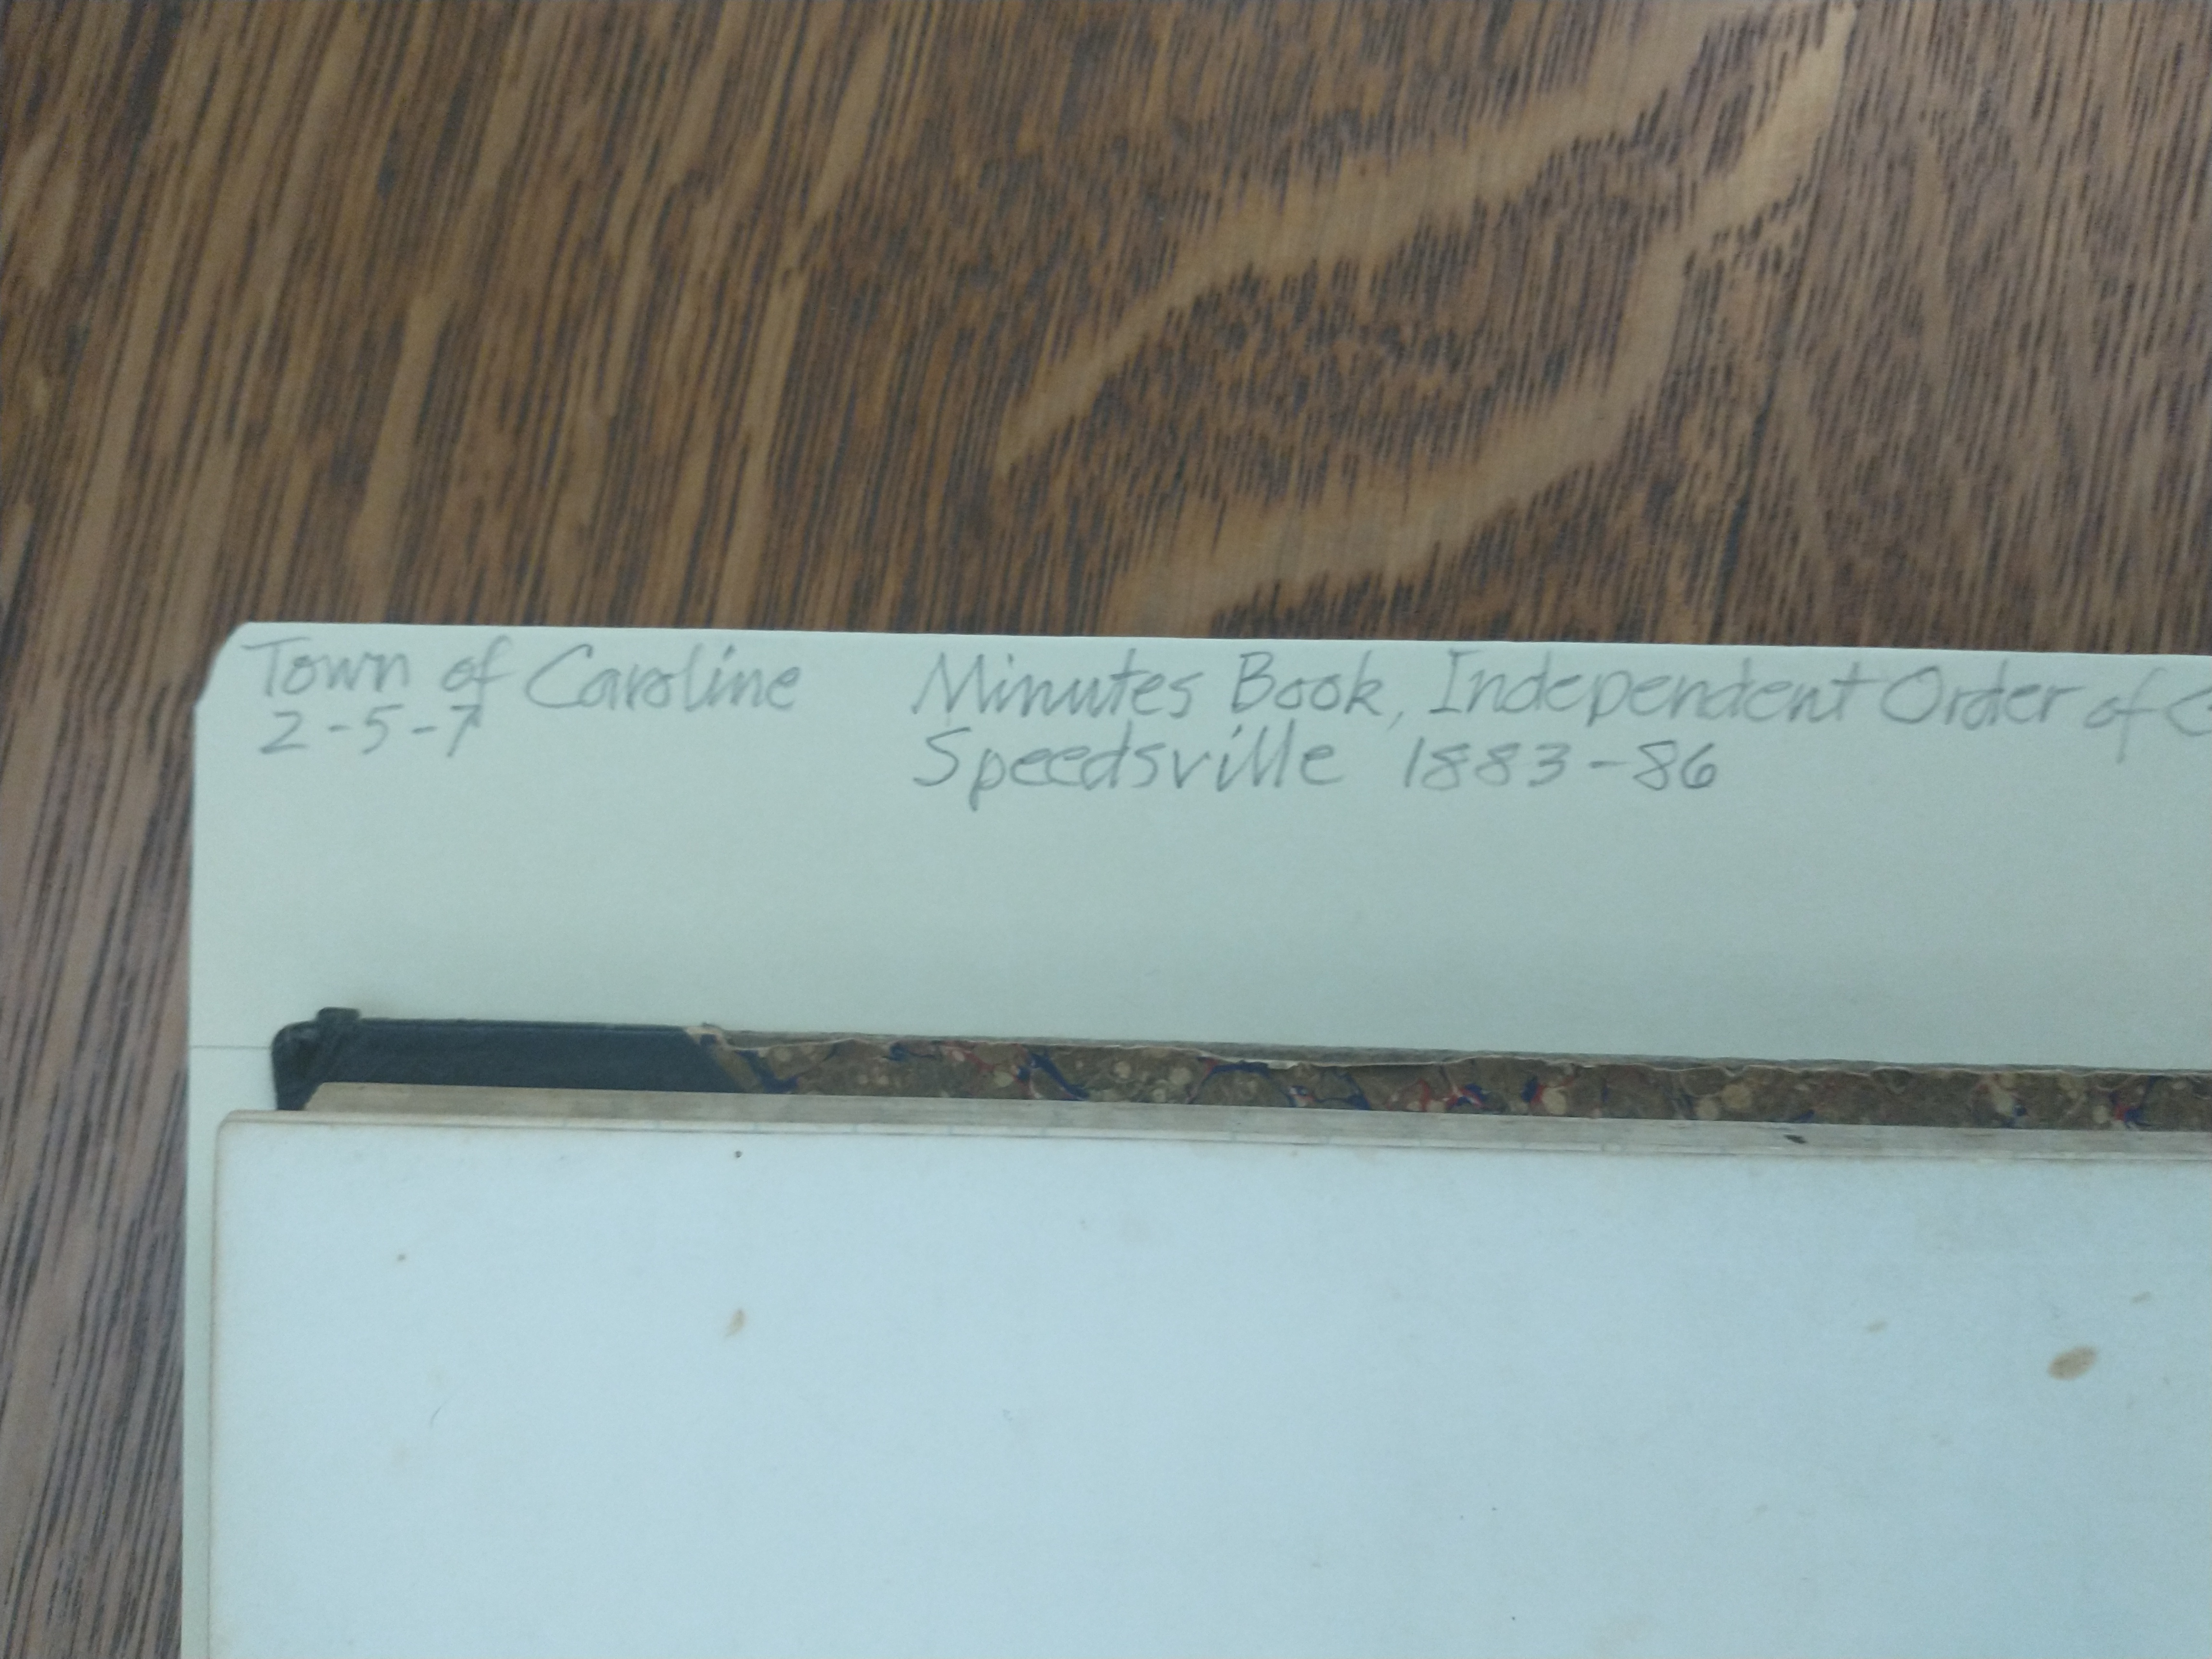 Town of Caroline Minutes Book, Independent Order of
2-5-7 Speedsville 1883-86